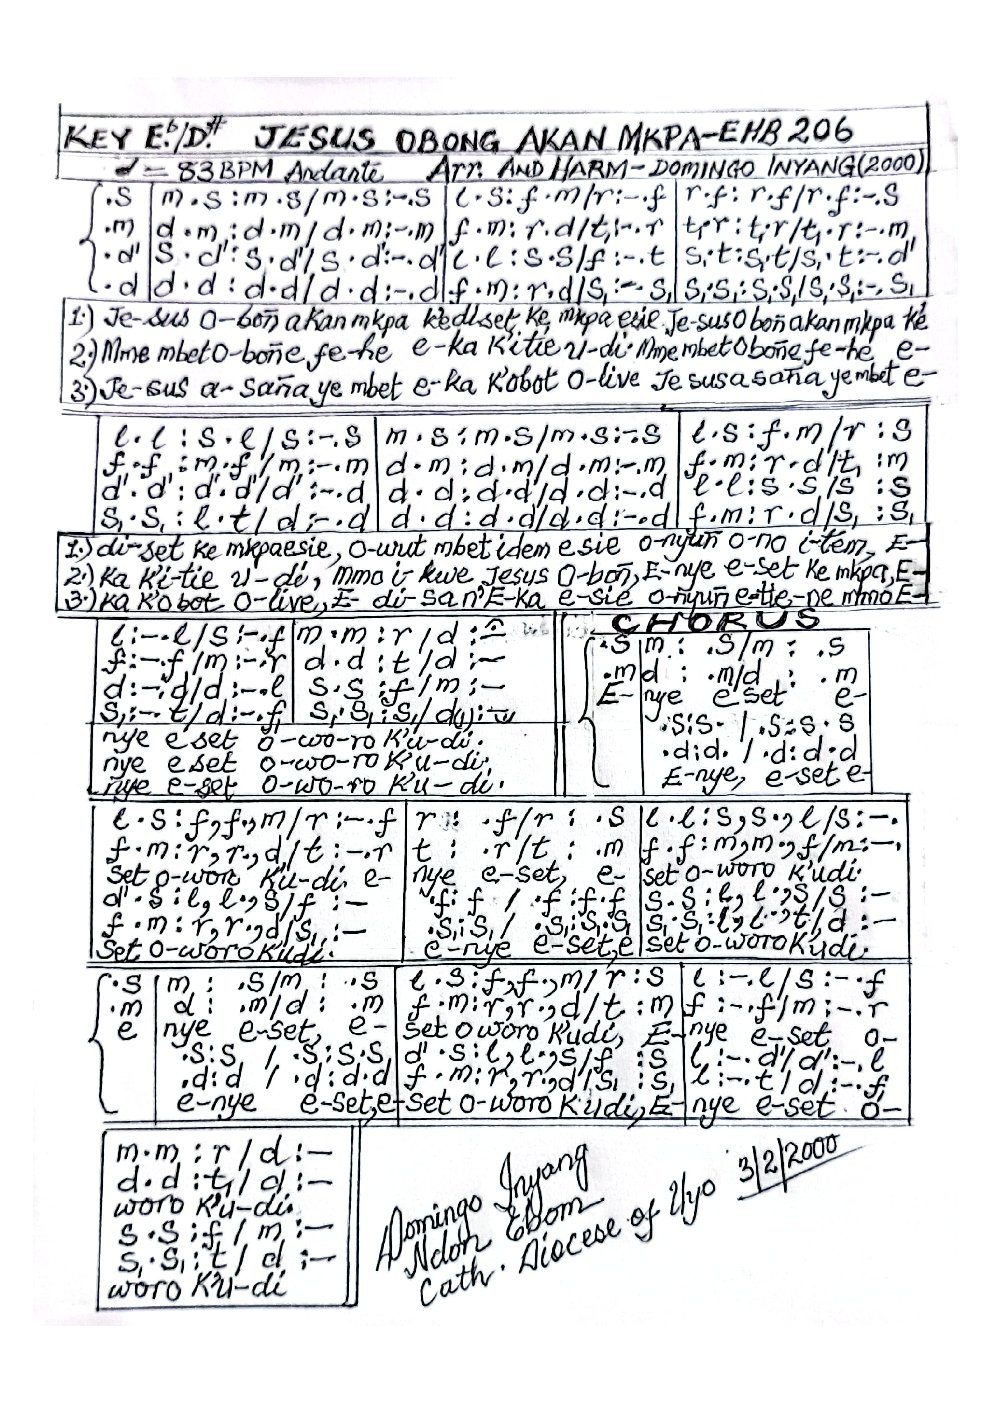 KEY E♭/D# JESUS OBONG AKAN MKPA-EHB 206
♩= 83BPM Andante Arr. AND HARM-DOMINGO INYANG(2000)
.S | m.s:m.s/m.s:-.s | l.s:f.m/r:-.f | r.f:r.f/r.f:-.s
.m | d.m:d.m/d.m:-.m | f.m:r.d/t₁:-.r | t₁.r:t₁.r/t₁.r:-.m
.d' | s.d':s.d'/s.d':-.d' | l.l:s.s/f:-.t | s₁.t:s₁.t/s₁.t:-.d'
.d | d.d:d.d/d.d:-.d | f.m:r.d/s₁:-.s₁ | s₁.s₁:s₁.s₁/s₁.s₁:-.s₁
1.) Je-sus O-boñ akan mkpa kedi set, ke mkpa esie. Je-sus O boñ akan mkpa ke
2.) Mme mbet O-boñ e, fe-he e-ka K'itie u-di. Mme mbet Oboñ e fe-he e-
3.) Je-sus a-saña ye mbet e-ka K'obot O-live Je sus a saña ye mbet e-
l.l:s.l/s:-.s | m.s:m.s/m.s:-.s | l.s:f.m/r:s
f.f:m.f/m:-.m | d.m:d.m/d.m:-.m | f.m:r.d/t₁:m
d'.d':d'.d'/d':-.d | d.d:d.d/d.d:-.d | l.l:s.s/s:s
s₁.s₁:l.t/d:-.d | d.d:d.d/d.d:-.d | f.m:r.d/s₁:s₁
1.) di-set ke mkpa esie, O-wut mbet idem esie o-nyuñ o-no i-tem, E-
2.) Ka K'i-tie u-di, Mmo i-kwe Jesus O-boñ, E-nye e-set ke mkpa, E-
3.) Ka K'obot O-live, E-di-san' E-ka e-sie o-nyuñ e-tie-ne mmo E-
l:-.l/s:-.f | m.m:r/d:-
f:-.f/m:-.r | d.d:t/d:-
d:-.d/d:-.l | s.s:f/m:-
s₁:-.t/d:-.f₁ | s₁.s₁:s₁/d(₁):-
nye e set o-wo-ro K'u-di.
nye e set o-wo-ro K'u-di,
nye e-set o-wo-ro K'u-di.
CHORUS
.s | m: .s/m: .s
.m | d: .m/d: .m
E- | nye e set e-
.s:s. / .s:s.s
.d:d. / .d:d.d
E-nye, e-set e-
l.s:f,f.,m/r:-.f | r: .f/r: .s | l.l:s,s.,l/s:-.
f.m:r,r.,d/t:-.r | t: .r/t: .m | f.f:m,m.,f/m:-.
set o-woro K'u-di. e- | nye e-set, e- | set o-woro K'udi
d'.s:l,l.,s/f:- | .f:f / .f:f.f | s.s:l,l.,s/s:-
f.m:r,r.,d/s₁:- | .s₁:s₁ / .s₁:s₁.s₁ | s₁.s₁:l,l.,t/d:-
set o-woro Kudi. | e-nye e-set, e | set o-woro K'udi.
.s | m: .s/m: .s | l.s:f,f.,m/r:s | l:-.l/s:-.f
.m | d: .m/d: .m | f.m:r,r.,d/t:m | f:-.f/m:-.r
e | nye e-set, e- | set o woro K'udi, E- | nye e-set o-
.s:s₁ / .s:s.s₁ | d'.s:l,l.,s/f:s | l:-.d'/d':-.l
.d:d / .d:d.d | f.m:r,r.,d/s₁:s₁ | l:-.t/d:-.f₁
e-nye e-set, e- | set o-woro K'udi, E- | nye e-set o-
m.m:r/d:-
d.d:t₁/d:-
woro K'u-di.
s.s:f/m:-
s₁.s₁:t/d:-
woro K'u-di
Domingo Inyang
Ndon Ebom
Cath. Diocese of Uyo 3/2/2000